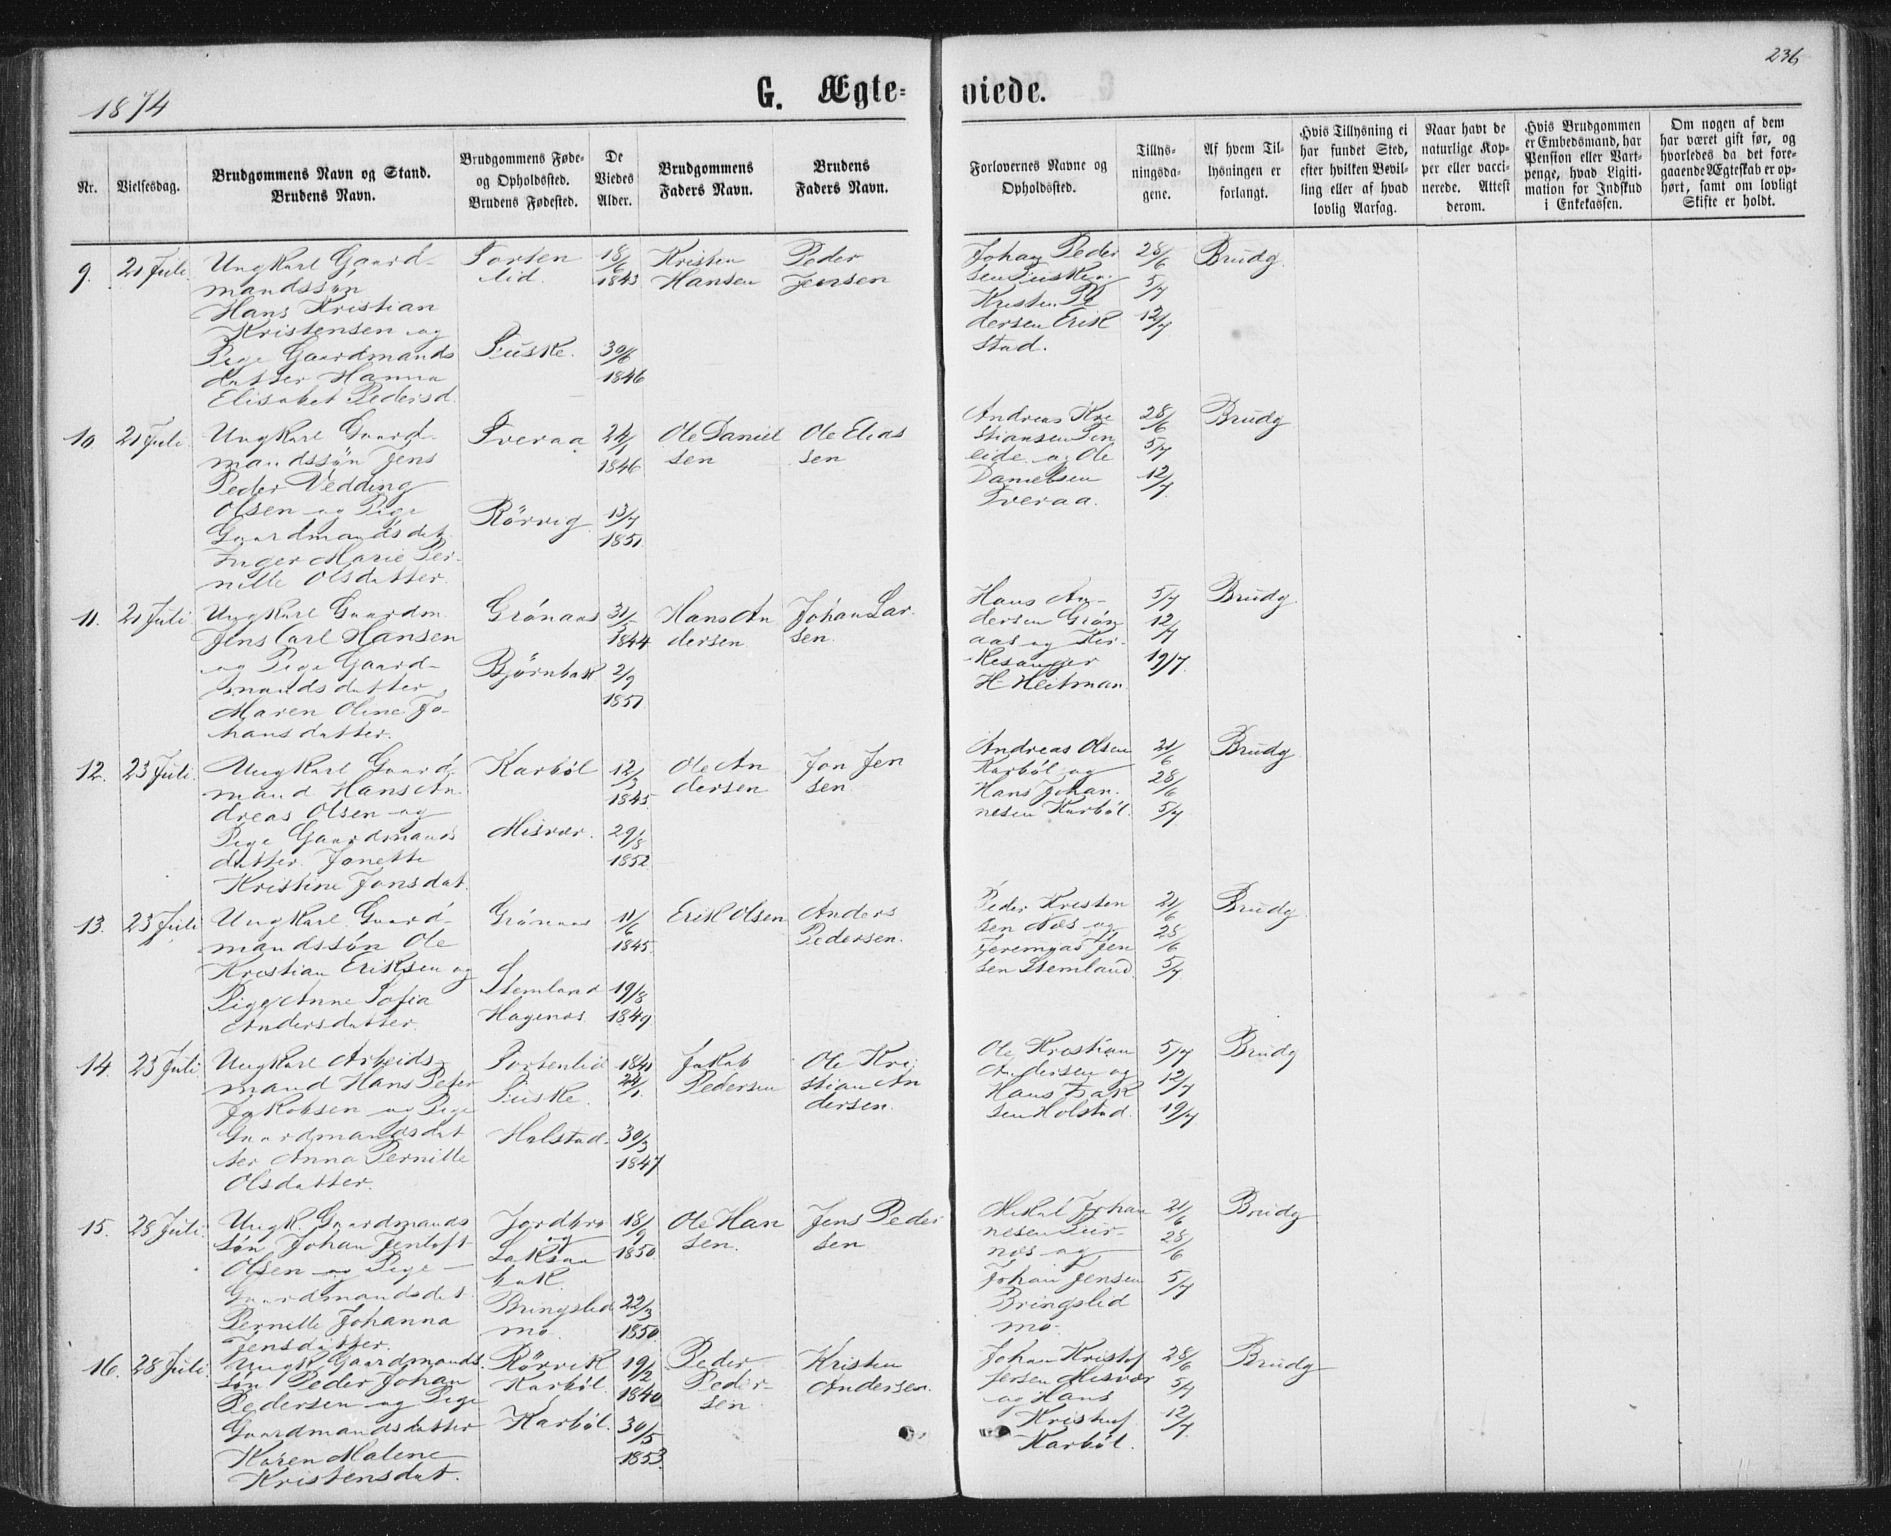 236
1874
G. Ægte=
viede.
Nr.
Vielsesdag.
Brudgommens Navn og Stand.
Brudens Navn.
Brudgommens Føde-
og Opholdssted.
Brudens Fødested.
De
Viedes
Alder.
Brudgommens
Faders Navn.
Brudens
Faders Navn.
Forlovernes Navne og
Opholdssted.
Tillys-
ningsda-
gene.
Af hvem Til-
lysningen er
forlangt.
Hvis Tillysning ei
har fundet Sted,
efter hvilken Bevil-
ling eller af hvad
lovlig Aarsag.
Naar havt de
naturlige Kop-
per eller vacci-
nerede. Attest
derom.
Hvis Brudgommen
er Embedsmand, har
Pension eller Vart-
penge, hvad Ligiti-
mation for Indskud
i Enkekassen.
Om nogen af dem
har været gift før, og
hvorledes da det fore-
gaaende Ægteskab er op-
hørt, samt om lovligt
Skifte er holdt.
9.
21 Juli
Ungkarl Gaard-
mandssøn
Hans Kristian
Kristensen og
Pige Gaardmands
datter Hanna
Elisabet Pedersd.
lid.
18/6
1843
30/6
1846
Kristen
Hansen
Peder
Jensen
Johan Peder
28/6
5/7
12/7
Kristen Pe
dersen Erik
stad.
Brudg.
10.
21 Juli
Ungkarl Gaard-
mandssøn Jens
Peder Vedding
Olsen og Pige
Gaardmandsdat.
Inger Marie Per-
nille Olsdatter.
Tveraa
Rørvig
24/1
1846
13/7
1851
Ole Daniel
sen
Ole Elias
sen
Andreas Kri
eide og Ole
Danielsen
Tveraa.
28/6
5/7
12/7
Brudg
11.
21 Juli
Ungkarl Gaardm.
Jens Carl Hansen
og Pige Gaard-
mandsdatter
Maren Oline Jo-
hansdatter.
Grønaas
Bjørnbak
31/3
1844
2/9
1851
Hans An
dersen
Johan Lar
sen.
Hans An-
dersen Grøn
aas og Kir-
kesanger
H. Heitman
5/7
12/7
19/7.
Brudg.
12.
23 Juli
Ungkarl Gaard-
mand Hans An
dreas Olsen og
Pige Gaardmands
datter Jonette
Kristine Jonsdat.
Karbøl
Misvær.
12/3
1845
29/8
1852
Ole An
dersen
Jon Jen
sen.
Andreas Olsen
Karbøl og
Hans Johan.
nesen Karbøl.
21/6
28/6
5/7
Brudg.
13.
23 Juli
Ungkarl Gaard-
mandssøn Ole
Kristian Eriksen og
Pige Anne Sofia
Andersdatter.
Grønaas
Stemland
Hagenes
11/6
1845.
19/8
1849.
Erik Olsen
Anders
Pedersen.
Peder Kristen
sen Næs og
Jeremias Jen
sen Stemland.
21/6
28/6
5/7
Brudg.
14.
23 Juli
Ungkarl Arbeids-
mand Hans Peter
Jakobsen og Pige
Gaardmandsdat
ter Anna Pernille
Olsdatter.
Holstad
1841
24/1
30/3
1847
Jakob
Pedersen
Ole Kri-
stian An
dersen.
Ole Kristian
Andersen og
Hans Isak
sen Holstad.
5/7
12/7
19/7
Brudg
15.
28 Juli.
Ungk. Gaardmands
søn Johan Jentoft
Olsen og Pige
Gaardmandsdat.
Pernille Johanna
Jensdatter.
Jordbro
og
bak.
Bringslid
mo.
18/9
1850.
22/3
1850.
Ole Han
sen.
Jens Peder
sen
Mikal Johan
nes og
Johan Jensen
Bringslid
mo.
21/6
28/6
5/7
Brudg
16.
28 Juli.
Ungk. Gaardmands.
søn Peder Johan
Pedersen og Pige
Gaardmandsdatter
Karen Malene
Kristensdat.
Rørvik
Karbøl.
Karbøl.
19/2
1840
30/5
1853.
Peder
Peder-
sen.
Kristen
Andersen.
Johan Kristof
fersen Misvær
og Hans
Kristof.
Karbøl.
28/6
5/7
12/7
Brudg